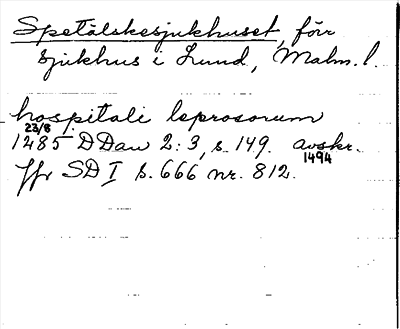 Spetälskesjukhuset, förr
sjukhus i Lund, Malm. l.
hospitali leprosorum
23/8
1285 DDan 2:3, s. 149. avskr.
1494
jfr SD I s. 666 nr. 812.